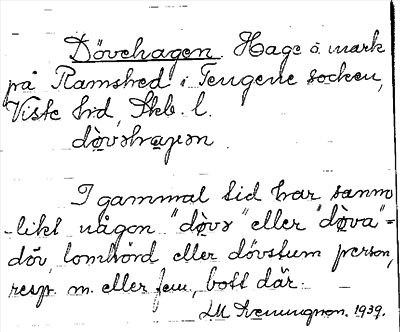 Dövehagen. Hage o. mark
på Ramshed i Tengene socken,
Viste hd, Skb. l.
I gammal tid har sanno-
likt någon "döve" eller "döva" =
döv, lomhörd eller dövstum person,
resp. m. eller fem., bott där.
1939.